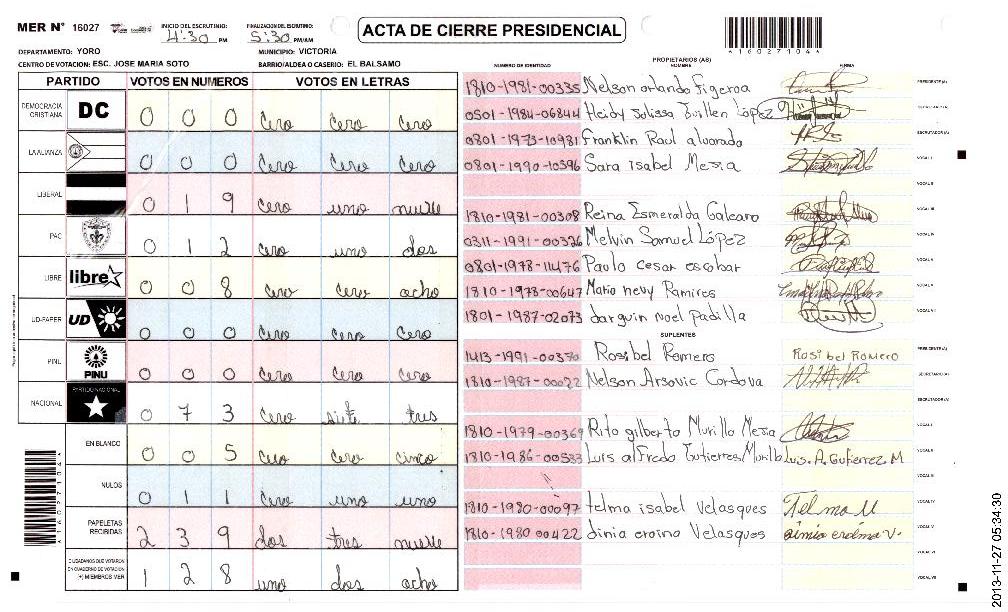 MER N° 16027
INICIO DEL ESCRUTINIO: 4:30 PM
FINALIZACION DEL ESCRUTINIO: 5:30 PM/AM
ACTA DE CIERRE PRESIDENCIAL
16027104
DEPARTAMENTO: YORO
MUNICIPIO: VICTORIA
CENTRO DE VOTACION: ESC. JOSE MARIA SOTO
BARRIO/ALDEA O CASERIO: EL BALSAMO
PARTIDO VOTOS EN NUMEROS VOTOS EN LETRAS
DEMOCRACIA CRISTIANA DC 0 0 0 Cero Cero Cero
LA ALIANZA 0 0 0 Cero Cero Cero
LIBERAL 0 1 9 Cero uno nueve
PAC 0 1 2 Cero uno dos
LIBRE libre 0 0 8 Cero Cero ocho
UD-FAPER UD 0 0 0 Cero Cero Cero
PINU PINU 0 0 0 Cero Cero Cero
NACIONAL PARTIDO NACIONAL 0 7 3 Cero siete tres
EN BLANCO 0 0 5 Cero Cero cinco
NULOS 0 1 1 Cero uno uno
PAPELETAS RECIBIDAS 2 3 9 dos tres nueve
CIUDADANOS QUE VOTARON EN CUADERNO DE VOTACION (+) MIEMBROS MER 1 2 8 uno dos ocho
PROPIETARIOS (AS)
NUMERO DE IDENTIDAD NOMBRE FIRMA
1810-1981-00335 Nelson orlando Figeroa PRESIDENTE(A)
0501-1984-06844 Heidy Julissa Guillen López SECRETARIO(A)
0801-1973-10981 Franklin Raul alvarado ESCRUTADOR(A)
0801-1990-10596 Sara Isabel Mesia VOCAL I
VOCAL II
1810-1981-00308 Reina Esmeralda Galeano VOCAL III
0311-1991-00326 Melvin Samuel López VOCAL IV
0801-1978-11476 Paulo cesar escobar VOCAL V
1810-1978-00647 Mario nevy Ramires VOCAL VI
1801-1987-02073 darguin noel Padilla VOCAL VII
SUPLENTES
1413-1991-00370 Rosibel Romero Rosibel Romero PRESIDENTE(A)
1810-1987-00022 Nelson Arsovic Cordova SECRETARIO(A)
ESCRUTADOR(A)
1810-1979-00369 Rito gilberto Murillo Mesia VOCAL I
1810-1986-00533 Luis alfredo Gutierres Murillo Luis. A. Gutierrez M VOCAL II
VOCAL III
1810-1980-00097 telma isabel Velasques Telma M VOCAL IV
1810-1980 00422 dinia eroina Velasques VOCAL V
VOCAL VI
VOCAL VII
16027104
2013-11-27 05:34:30